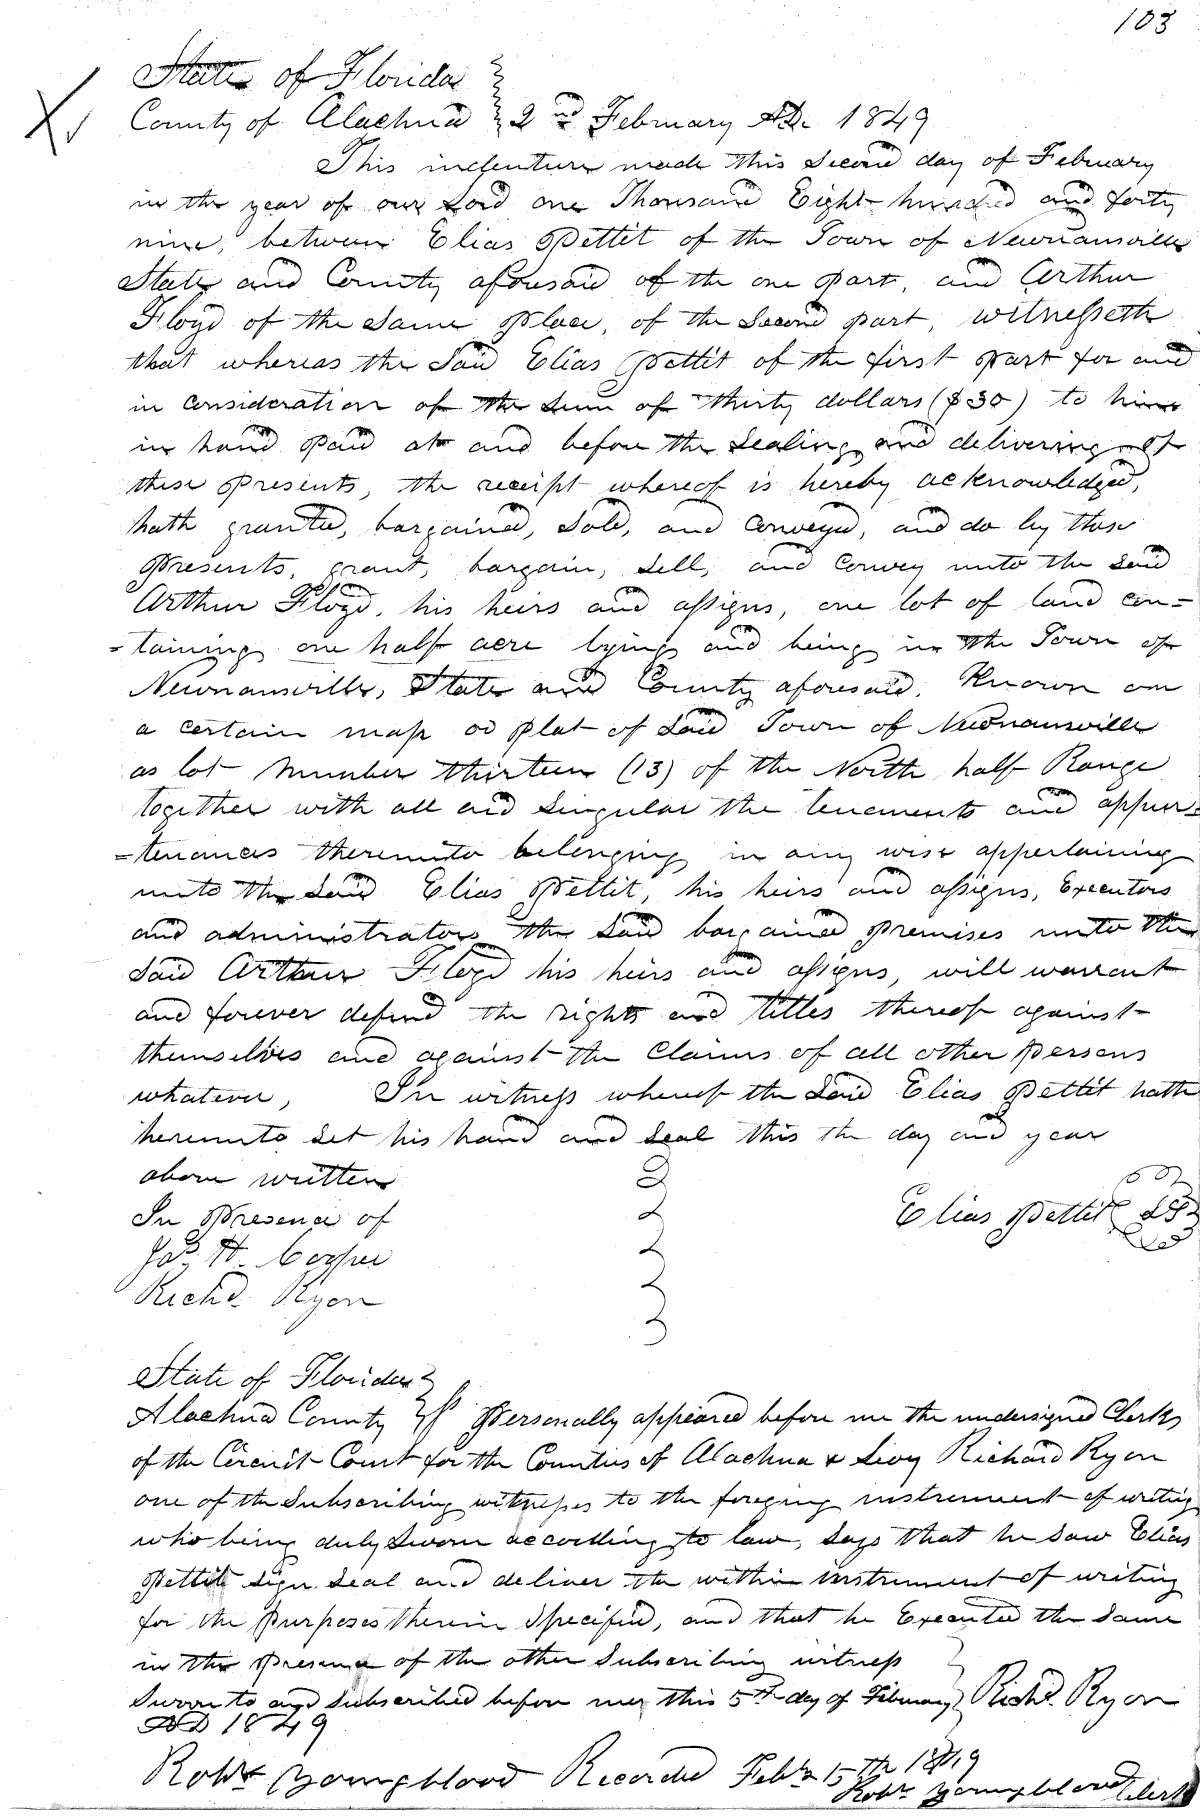 103
State of Florida
County of Alachua 2nd February AD. 1849
This indenture made this Second day of February
in the year of our Lord one Thousand Eight hundred and forty
nine, between Elias Pettit of the Town of Newnansville
State and County aforesaid of the one part, and Arthur
Floyd of the Same Place, of the Second part, witnesseth
that whereas the Said Elias Pettit of the first part for and
in consideration of the Sum of thirty dollars ($30) to him
in hand paid at and before the Sealing and delivering of
these presents, the receipt whereof is hereby acknowledged,
hath granted, bargained, Sold, and Conveyed, and do by these
Presents, grant, bargain, Sell, and Convey unto the Said
Arthur Floyd, his heirs and assigns, one lot of land con=
=taining one half acre lying and being in the Town of
Newnansville, State and County aforesaid, Known on
a certain map or plat of Said Town of Newnansville
as lot number thirteen (13) of the North half Range
together with all and Singular the tenements and appur=
=tenances thereunto belonging in any wise appertaining
unto the Said Elias Pettit, his heirs and assigns, Executors
and administrators the Said bargained premises unto the
Said Arthur Floyd his heirs and assigns, will warrant
and forever defend the rights and titles thereof against
themselves and against the Claims of all other persons
whatever, In witness whereof the Said Elias Pettit hath
hereunto Set his hand and Seal this the day and year
above written
In Presence of Elias Pettit LS
Jas. H. Cooper
Richd. Ryon
State of Florida
Alachua County Personally appeared before me the undersigned Clerk
of the Circuit Court for the Counties of Alachua & Levy Richard Ryon
one of the Subscribing witnesses to the foregoing instrument of writing
who being duly Sworn according to law, Says that he Saw Elias
Pettit Sign Seal and deliver the within instrument of writing
for the Purposes therein Specified, and that he Executed the Same
in the presence of the other Subscribing witness
Sworn to and Subscribed before me, this 5th day of February Richd. Ryon
AD 1849
Robt Youngblood Recorded Feby 15th 1849
Robt Youngblood Clerk